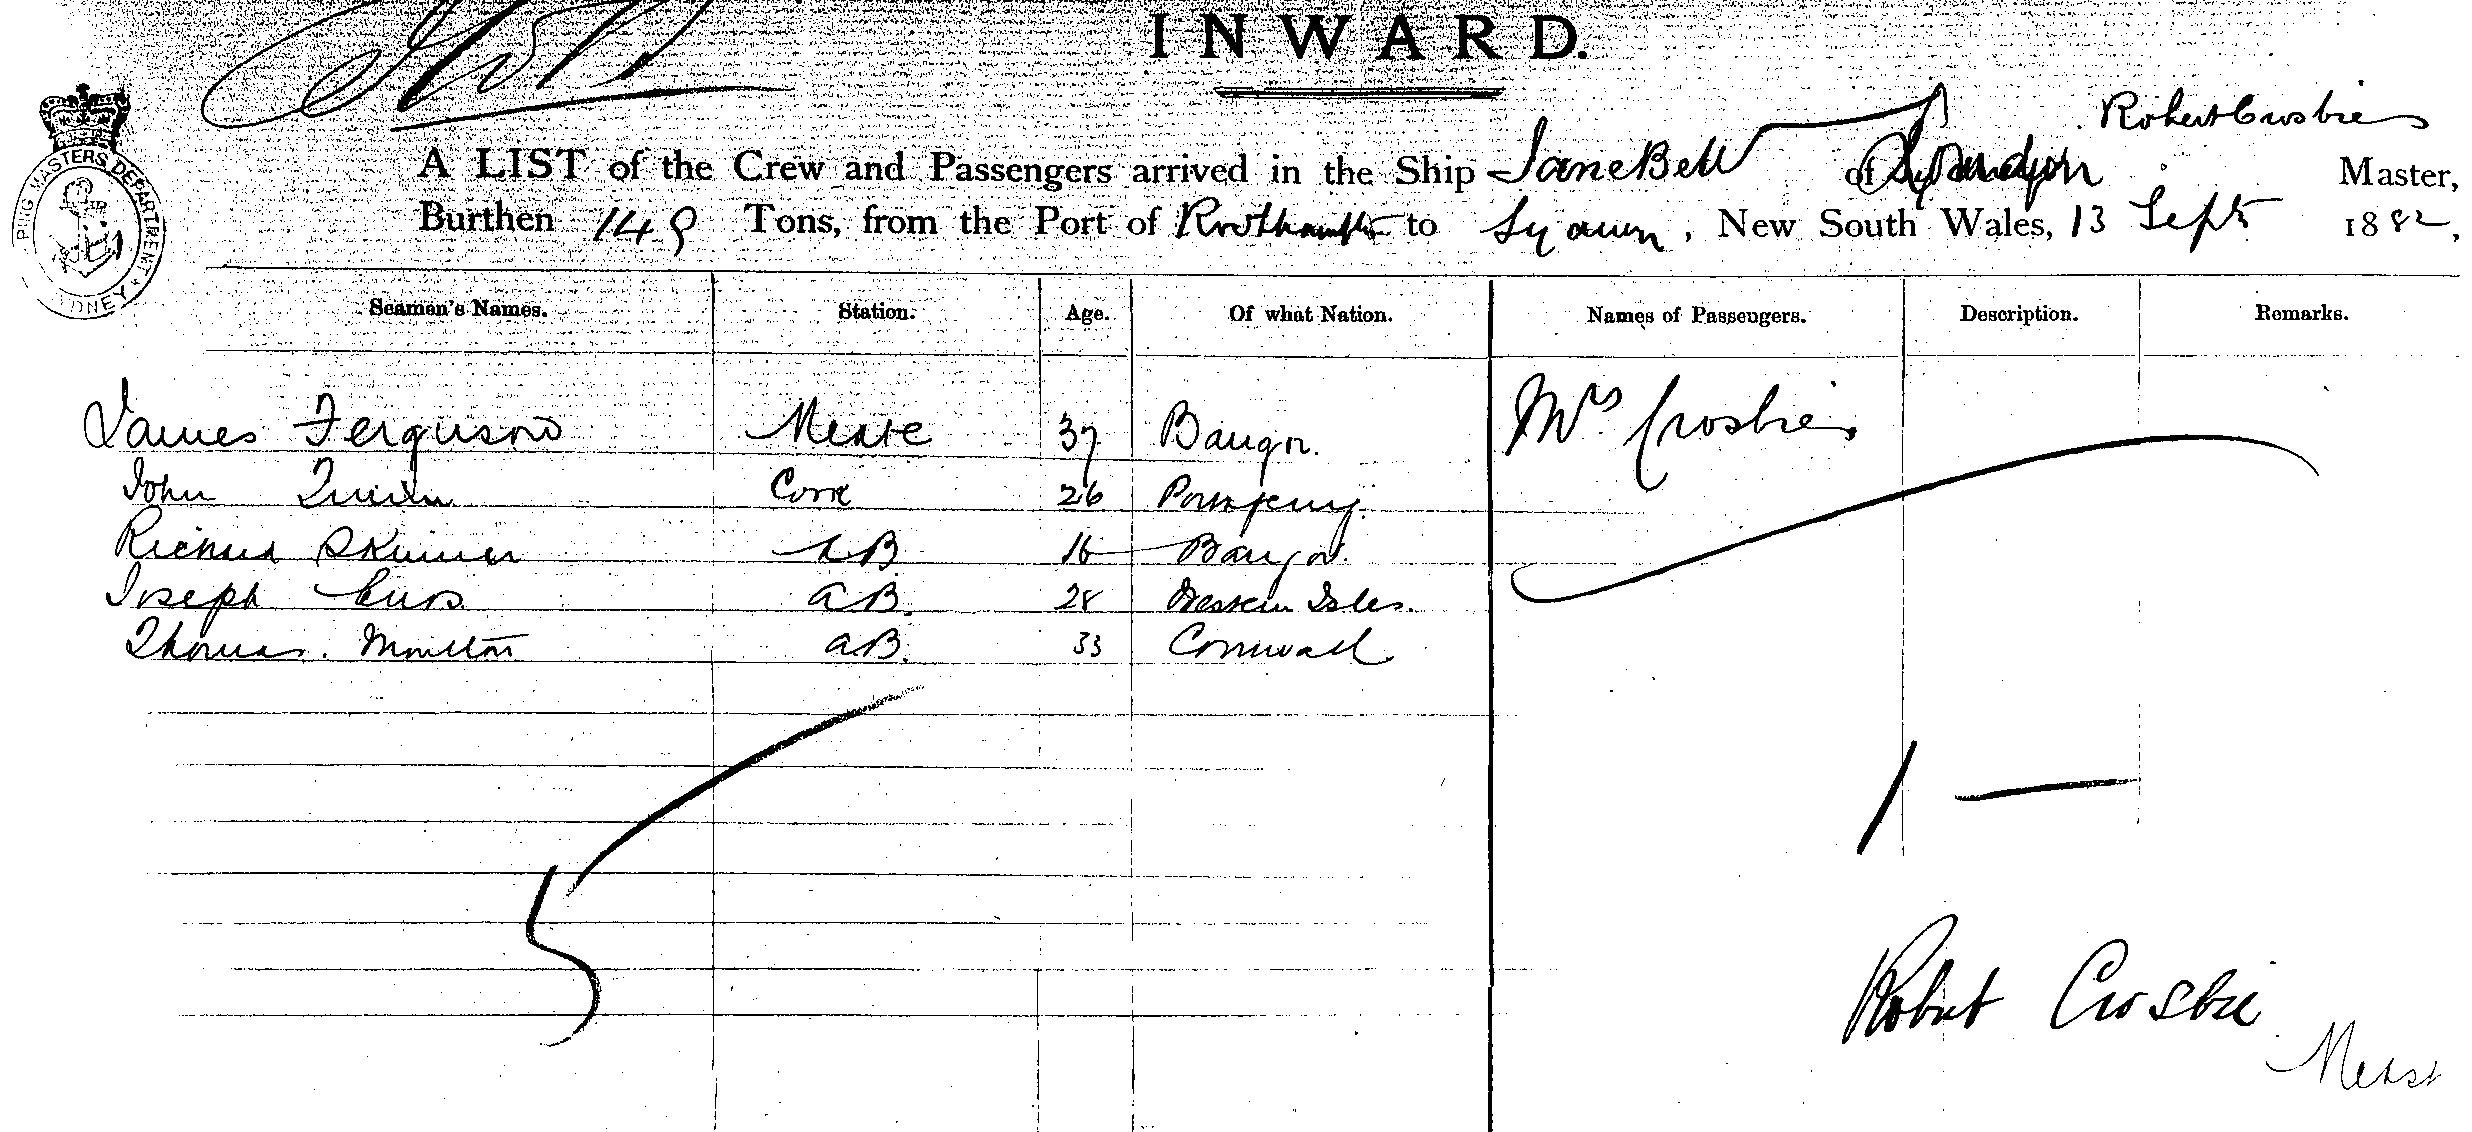 INWARD.
Robert Crosbie
A LIST of the Crew and Passengers arrived in the Ship Jane Bell of Master,
Burthen 149 Tons, from the Port of to Sydney, New South Wales, 13 Sept 1882,
PING MASTERS DEPARTMENT
YDNEY
Seamen's Names. Station. Age. Of what Nation. Names of Passengers. Description. Remarks.
James Ferguson Mate 37 Bangor. Mrs Crosbie
John Quinn 26
Richard Skinner AB 16 Bangor.
Joseph AB. 28 Western Isles.
Thomas. Moulton AB. 33 Cornwall
1 —
5
Robert Crosbie
Master